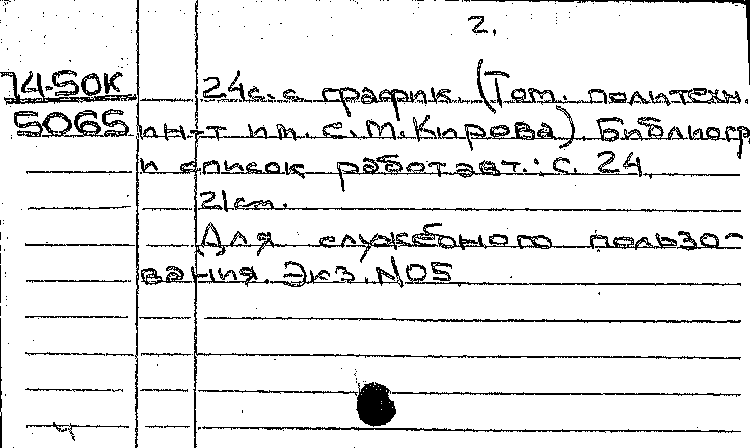 2.
74-50К 24с. с график. (Том. политехн.
5065 ин-т им. С.М.Кирова). Библиогр
и список работ авт.: с. 24.
21см.
Для служебного пользо-
вания. Экз. N05.